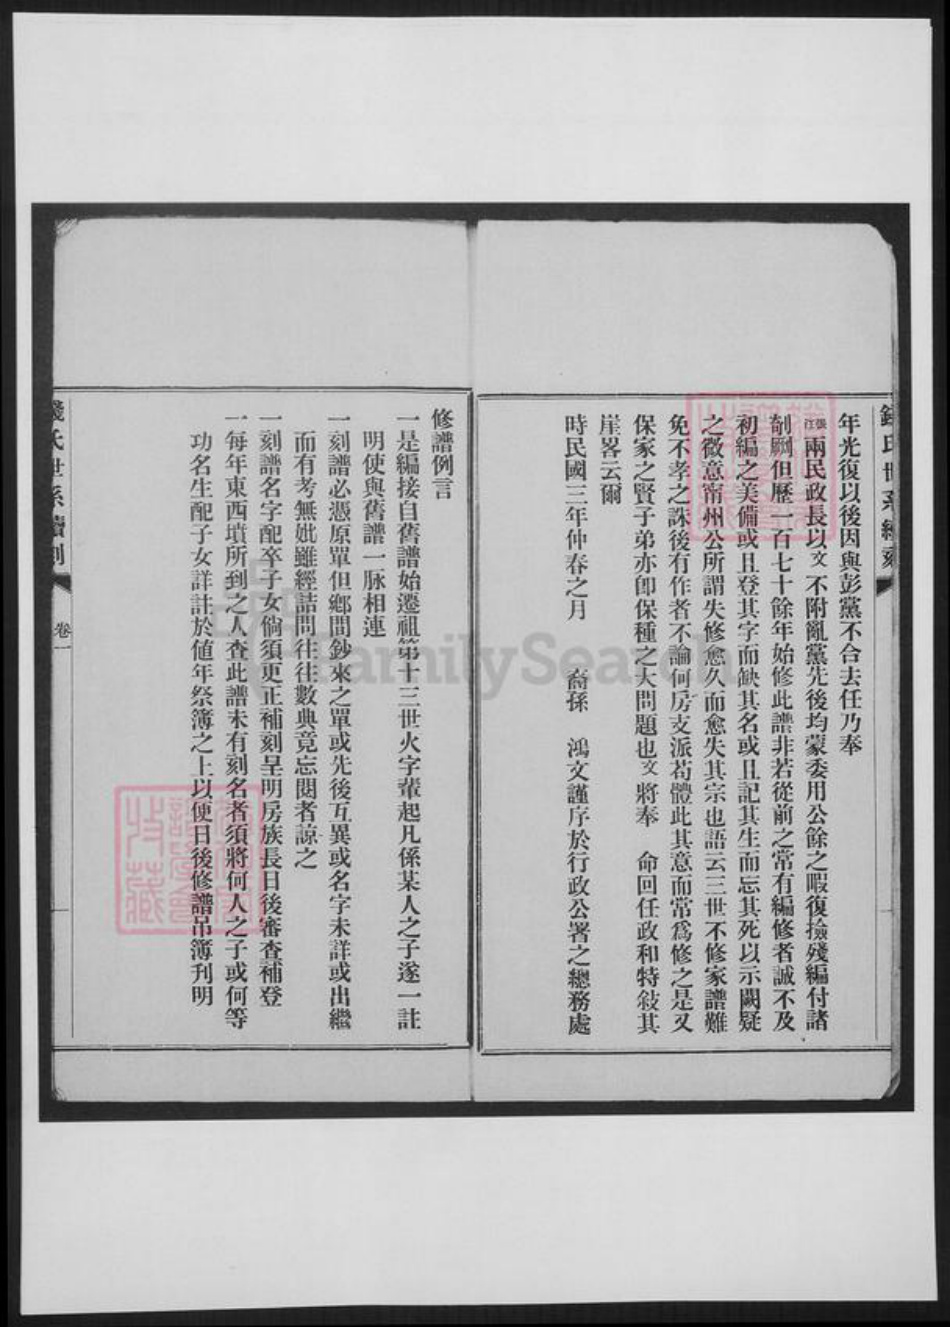 錢氏世系續刻
年光復以後因與彭黨不合去任乃奉
張汪兩民政長以文不附亂黨先後均蒙委用公餘之暇復撿殘編付諸
剞劂但歷一百七十餘年始修此譜非若從前之常有編修者誠不及
初編之美備或且登其字而缺其名或且記其生而忘其死以示闕疑
之微意甯州公所謂失修愈久而愈失其宗也語云三世不修家譜難
免不孝之誅後有作者不論何房支派苟體此其意而常爲修之是又
保家之賢子弟亦卽保種之大問題也文將奉 命回任政和特敍其
崖畧云爾
時民國三年仲春之月 裔孫 鴻文謹序於行政公署之總務處
修譜例言
一是編接自舊譜始遷祖第十三世火字輩起凡係某人之子遂一註
明使與舊譜一脉相連
一刻譜必憑原單但鄉間鈔來之單或先後互異或名字未詳或出繼
而有考無妣雖經詰問往往數典竟忘閱者諒之
一刻譜名字配卒子女倘須更正補刻呈明房族長日後審查補登
一每年東西墳所到之人查此譜未有刻名者須將何人之子或何等
功名生配子女詳註於値年祭簿之上以便日後修譜吊簿刋明
錢氏世系續刻
卷一
FamilySearch